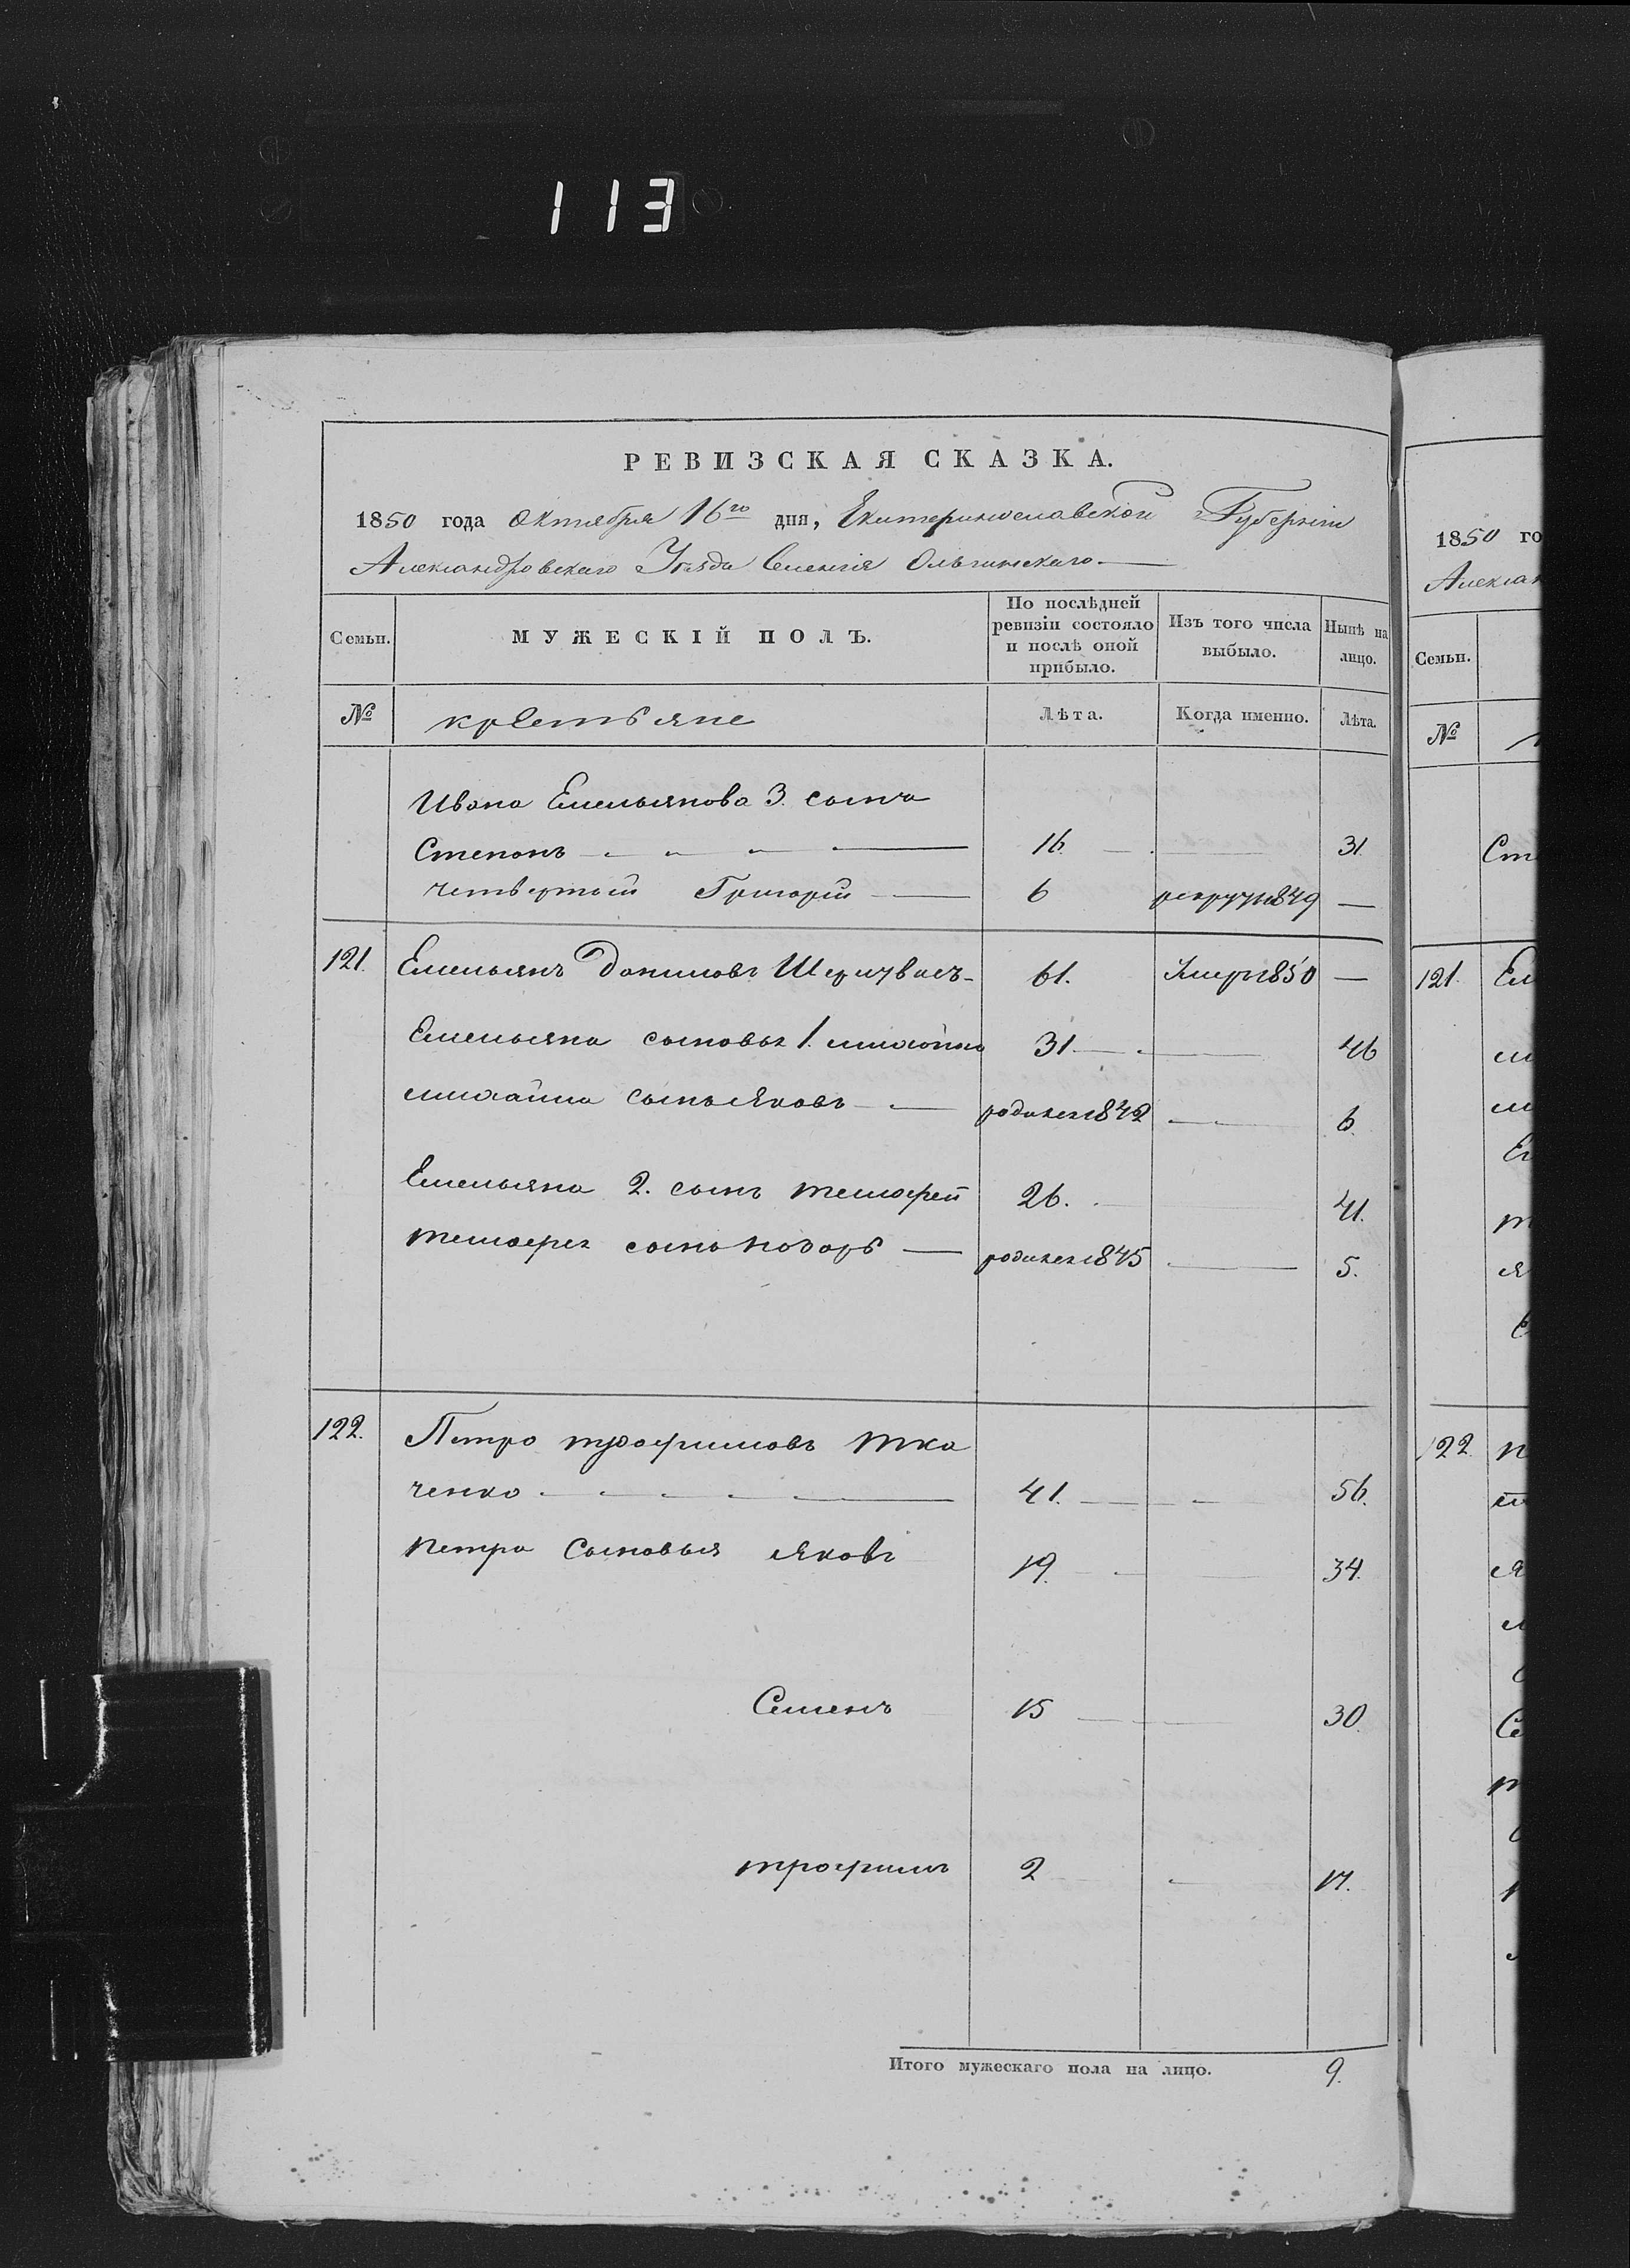 113
РЕВИЗСКАЯ СКАЗКА.
1850 года Октября 16го дня, Екатеринославской Губерніи
Александровскаго Уѣзда Селенія Ольгинскаго
Семьи.
МУЖЕСКІЙ ПОЛЪ.
По послѣдней ревизіи состояло и послѣ оной прибыло.
Изъ того числа выбыло.
Нынѣ на лицо.
№ крестьяне Лѣта. Когда именно. Лѣта.
Ивана Емельянова 3. сына
Степанъ 16. 31.
четвертый Григорій 6 1849 —
121. Емельянъ Даниловъ 61. Умеръ 1850 —
Емельяна сыновья 1. михайла 31 46
михайла сынъ яковъ родился 1842 6.
Емельяна 2. сынъ тимофей 26. 41.
тимофея сынъ родился 1845 5.
122. Петро трофимовъ тка
ченко 41. 56.
петра сыновья яковъ 19. 34.
Семенъ 15 30.
трофимъ 2 17.
Итого мужескаго пола на лицо. 9.
1850 го
Алексан
Семьи.
№
Ст
121. Ем
122